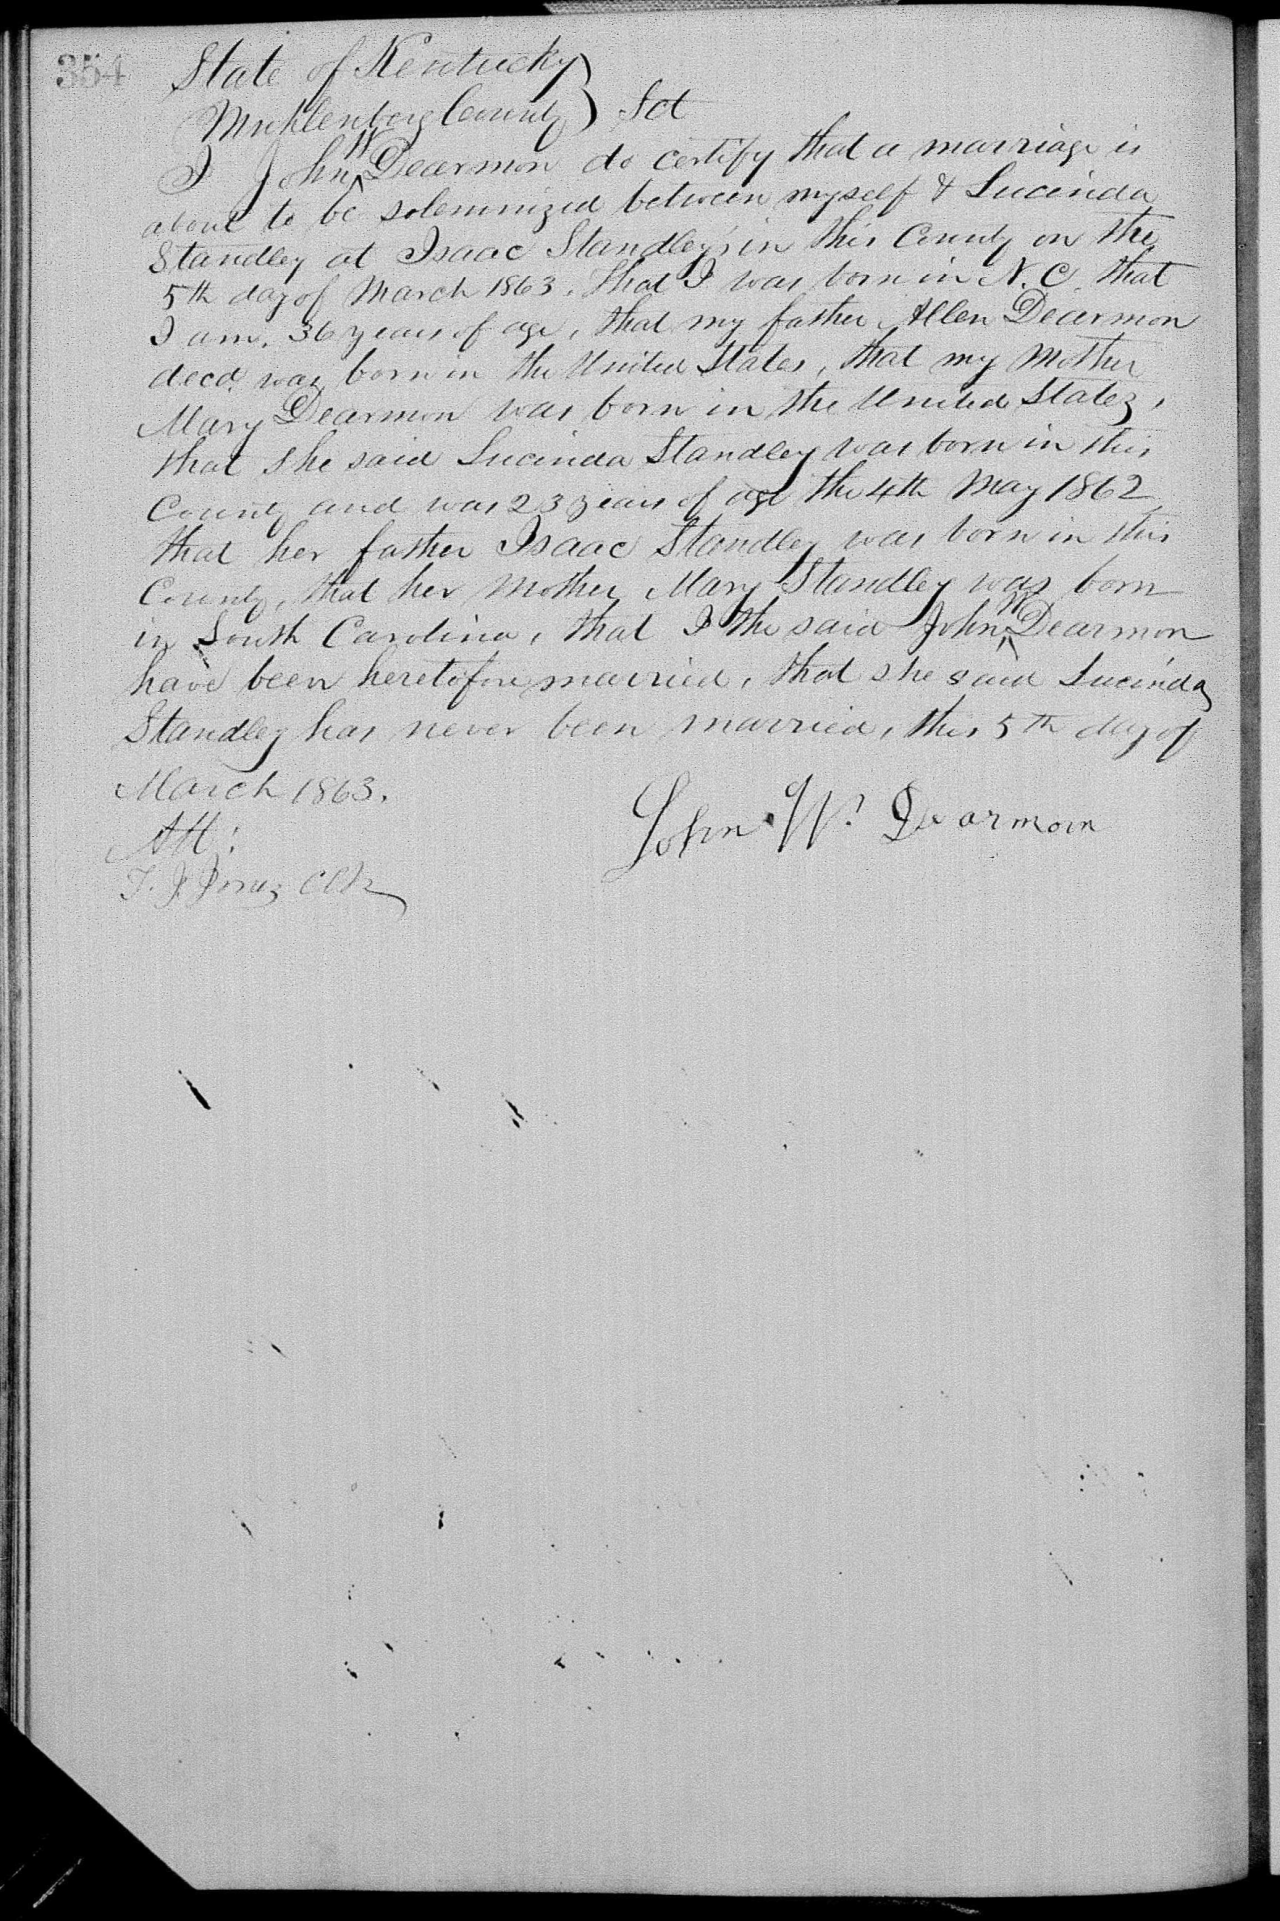 354
State of Kentucky }
Muhlenberg County } Sct
I John W Dearmon do certify that a marriage is
about to be solemnized between myself & Lucinda
Standley at Isaac Standley's in this County on the
5th day of March 1863. That I was born in N.C. that
I am 36 years of age, that my father Allen Dearmon
decd. was born in the United States, that my mother
Mary Dearmon was born in the United States,
that she said Lucinda Standley was born in this
County and was 23 years of age the 4th May 1862
that her father Isaac Standley was born in this
County, that her mother Mary Standley was born
in South Carolina, that I the said John W Dearmon
have been heretofore married, that she said Lucinda
Standley has never been married, this 5th day of
March 1863.
John W. Dearmon
Att:
T. J. Jones Clk